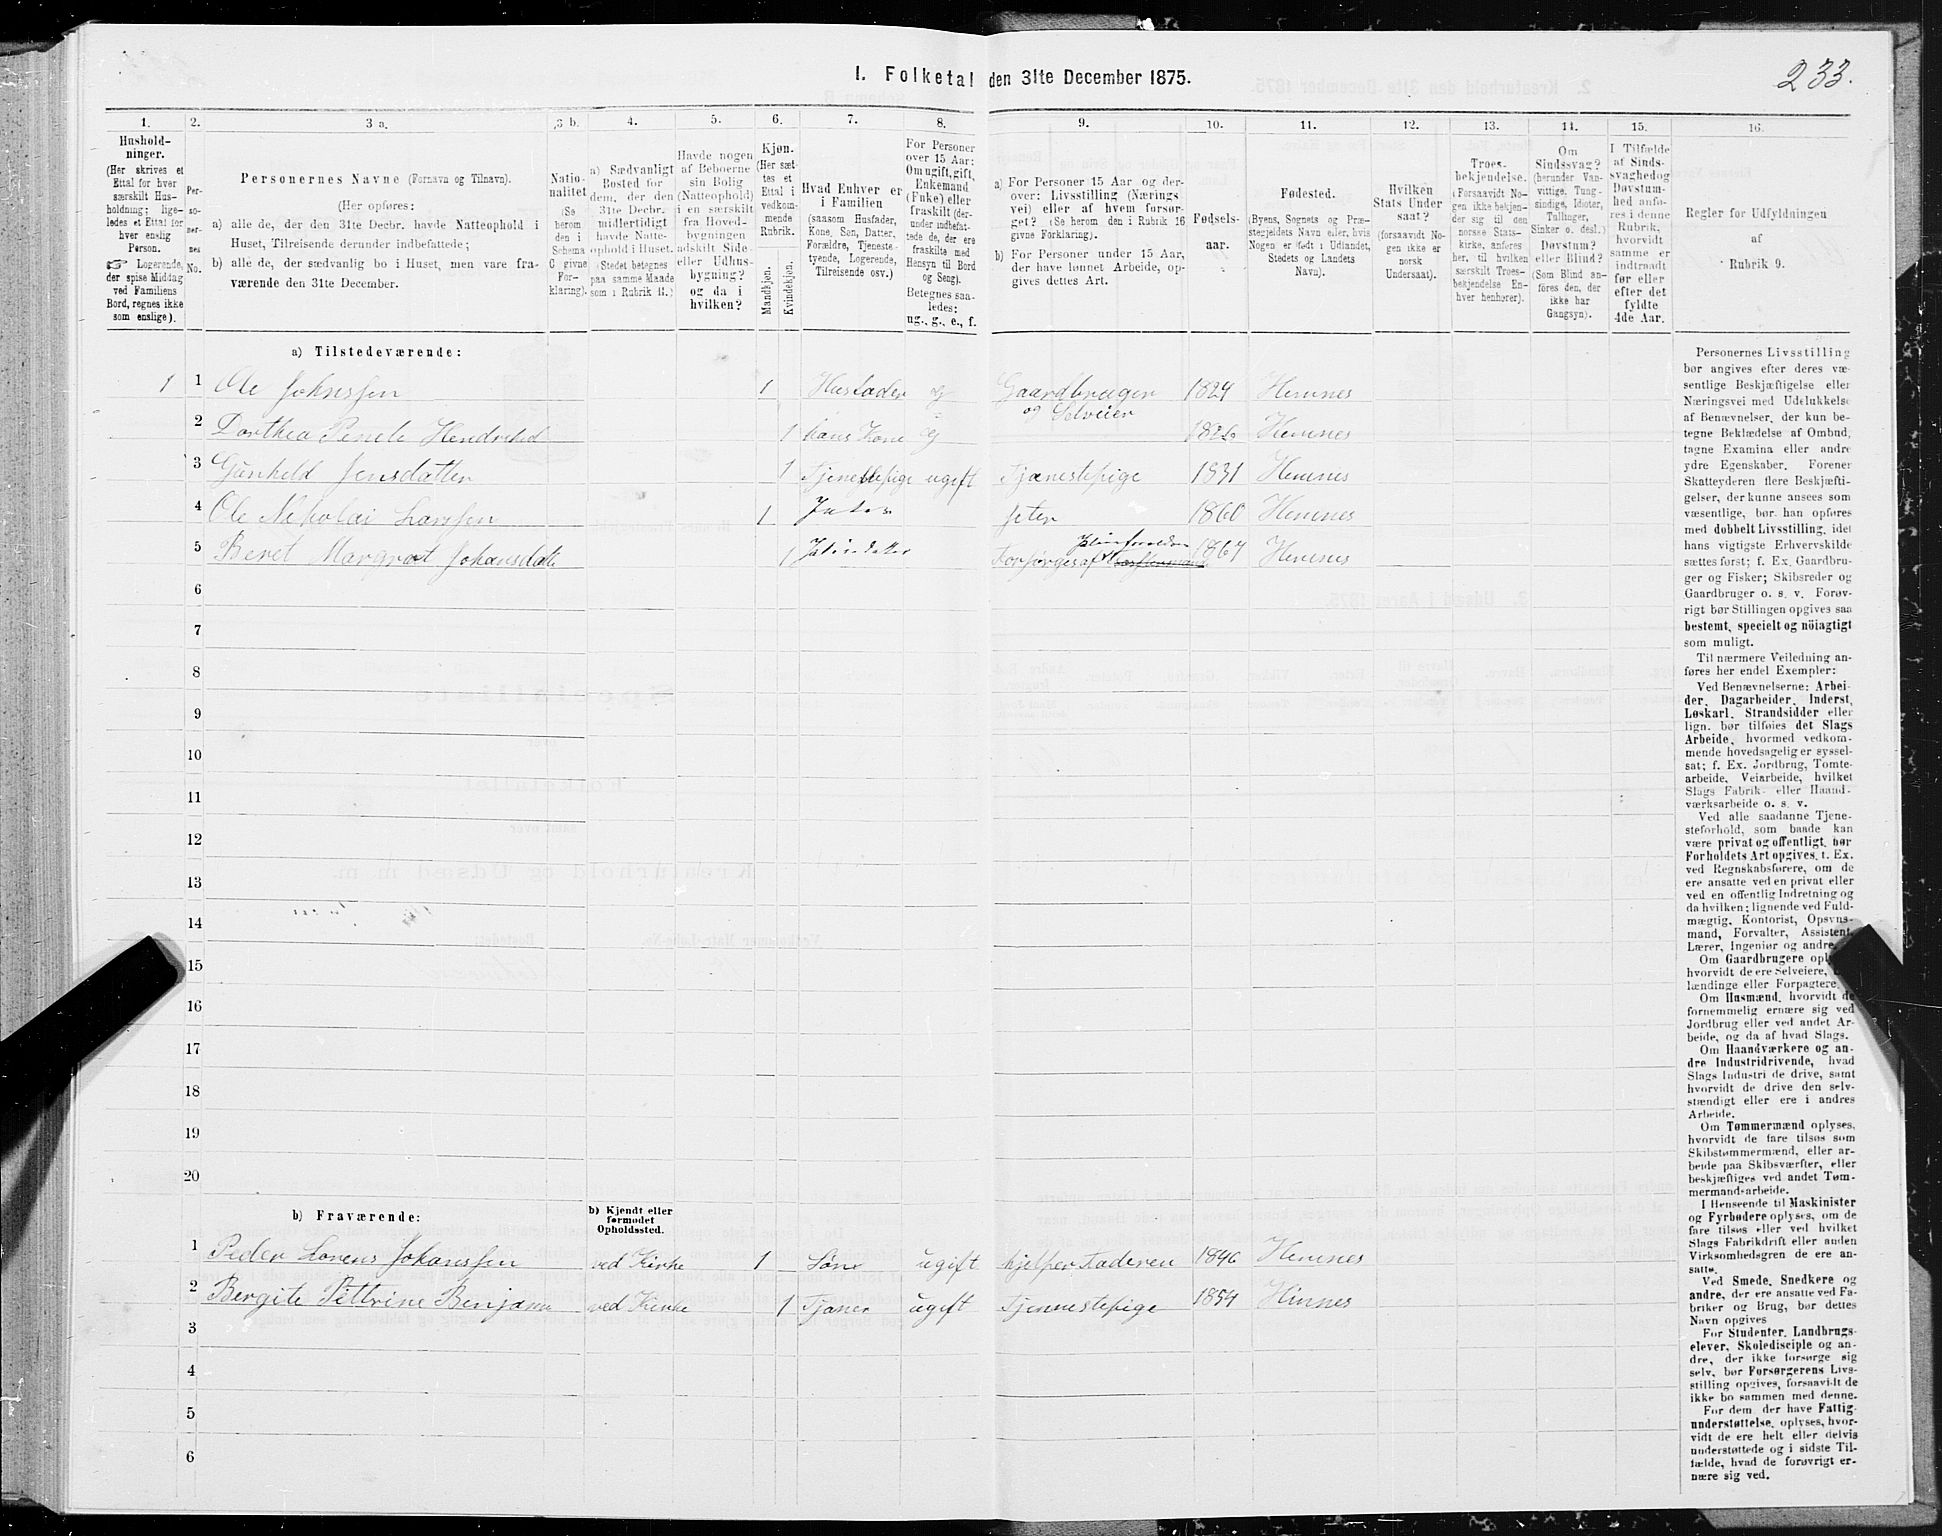 I. Folketal den 31te December 1875.
233.
1. 2. 3 a. 3 b. 4. 5. 6. 7. 8. 9. 10. 11. 12. 13. 14. 15. 16.
Hushold-
ninger.
(Her skrives et
Ettal for hver
særskilt Hus-
holdning; lige-
ledes et Ettal for
hver enslig
Person.
☞ Logerende,
der spise Middag
ved Familiens
Bord, regnes ikke
som enslige).
Per-
so-
ner-
nes
No.
Personernes Navne (Fornavn og Tilnavn).
(Her opføres:
a) alle de, der den 31te Decbr. havde Natteophold i
Huset, Tilreisende derunder indbefattede;
b) alle de, der sædvanlig bo i Huset, men vare fra-
værende den 31te December.
Natio-
nalitet
(Se
herom
den i
Schema
C givne
For-
klaring).
a) Sædvanligt
Bosted for
dem, der den
31te Decbr.
midlertidigt
havde Natte-
ophold i Huset.
(Stedet betegnes
paa samme Maade
som i Rubrik 11.)
Havde nogen
af Beboerne
sin Bolig
(Natteophold)
i en særskilt
fra Hoved-
bygningen
adskilt Side-
eller Udhus-
bygning?
og da i
hvilken?
Kjøn.
(Her sæt-
tes et
Ettal i
vedkom-
mende
Rubrik.
Mandkjøn.
Kvindekjøn.
Hvad Enhver er
i Familien
(saasom Husfader,
Kone, Søn, Datter,
Forældre, Tjeneste-
tyende, Logerende,
Tilreisende osv.)
For Personer
over 15 Aar:
Om ugift, gift,
Enkemand
(Enke) eller
fraskilt (der-
under indbefat-
tede de, der ere
fraskilte med
Hensyn til Bord
og Seng).
Betegnes saa-
ledes:
ug., g., e., f.
a) For Personer 15 Aar og der-
over: Livsstilling (Nærings
vei) eller af hvem forsør-
get? (Se herom den i Rubrik 16
givne Forklaring).
b) For Personer under 15 Aar,
der have lønnet Arbeide, op-
gives dettes Art.
Fødsels-
aar.
Fødested.
(Byens, Sognets og Præ-
stegjeldets Navn eller, hvis
Nogen er født i Udlandet,
Stedets og Landets
Navn).
Hvilken
Stats Under
saat?
(forsaavidt No-
gen ikke er
norsk
Undersaat).
Troes-
bekjendelse.
(Forsaavidt No-
gen ikke bekjen-
der sig til den
norske Stats-
kirke, anføres
her, til hvilken
særskilt Troes-
bekjendelse En-
hver henhører).
Om
Sindssvag?
(herunder Van-
vittige, Tung-
sindige, Idioter,
Tullinger,
Sinker o. desl.)
Døvstum?
eller Blind?
(Som Blind an-
føres den, der
ikke har
Gangsyn).
I Tilfælde
af Sinds-
svaghed og
Døvstum-
hed anfø-
res i denne
Rubrik,
hvorvidt
samme er
indtraadt
før eller
efter det
fyldte
4de Aar.
Regler for Udfyldningen
af
Rubrik 9.
a) Tilstedeværende:
1 1 Ole Johnssen 1 Husfader g Gaardbruger 1824 Hemnes
og Selveier
2 Dorthea Hendriksd 1 hans Kone g 1826 Hemnes
3 Gunhild Jensdatter 1 Tjenestepige ugift Tjænestepige 1831 Hemnes
4 Ole Nikolai Larssen 1 jeter 1860 Hemnes
5 Beret Margret Johansdatte 1 Forsørges af 1864 Hemnes
6
7
8
9
10
11
12
13
14
15
16
17
18
19
20
b) Fraværende:
b) Kjendt eller
formodet
Opholdssted.
1 Peder Lorens Johanssen ved Kirke 1 Søn ugift hjelper Faderen 1846 Hemnes
2 Bergite Pettrine Benjam ved Kirke 1 Tjaner ugift Tjennestepige 1854 Hinnes
3
4
5
6
Personernes Livsstilling
bør angives efter deres væ-
sentlige Beskjæftigelse eller
Næringsvei med Udelukkelse
af Benævnelser, der kun be-
tegne Beklædelse af Ombud,
tagne Examina eller andre
ydre Egenskaber. Forener
Skatteyderen flere Beskjæfti-
gelser, der kunne ansees som
væsentlige, bør han opføres
med dobbelt Livsstilling, idet
hans vigtigste Erhvervskilde
sættes først; f. Ex. Gaardbru-
ger og Fisker; Skibsreder og
Gaardbruger o. s. v. Forøv-
rigt bør Stillingen opgives saa
bestemt, specielt og nöiagtigt
som muligt.
Til nærmere Veiledning an-
føres her endel Exempler:
Ved Benævnelserne: Arbei-
der, Dagarbeider, Inderst,
Løskarl, Strandsidder eller
lign. bør tilføies det Slags
Arbeide, hvormed vedkom-
mende hovedsagelig er syssel-
sat; f. Ex. Jordbrug, Tomte-
arbeide, Veiarbeide, hvilket
Slags Fabrik- eller Haand-
værksarbeide o. s. v.
Ved alle saadanne Tjene-
steforhold, som baade kan
være privat og offentligt, bør
Forholdets Art opgives, t. Ex.
ved Regnskabsførere, om de
ere ansatte ved en privat eller
ved en offentlig Indretning og
da hvilken; lignende ved Fuld-
mægtig, Kontorist, Opsyns-
mand, Forvalter, Assistent,
Lærer, Ingeniør og andre.
Om Gaardbrugere opl
hvorvidt de ere Selveiere,
lændinge eller Forpagtere.
Om Husmænd, hvorvidt de
fornemmelig ernære sig ved
Jordbrug eller ved andet Ar-
beide, og da af hvad Slags.
Om Haandværkere og an-
dre Industridrivende, hvad
Slags Industri de drive, samt
hvorvidt de drive den selv-
stændigt eller ere i andres
Arbeide.
Om Tømmermænd oplyses,
hvorvidt de fare tilsøs som
Skibstømmermænd, eller ar-
beide paa Skibsværfter, eller
beskjæftiges ved andet Tøm-
mermandsarbeide.
I Henseende til Maskinister
og Fyrbødere oplyses, om de
fare tilsøs eller ved hvilket
Slags Fabrikdrift eller anden
Virksomhedsgren de ere an-
satte.
Ved Smede, Snedkere og
andre, der ere ansatte ved Fa-
briker og Brug, bør dettes
Navn opgives
For Studenter, Landbrugs-
elever, Skoledisciple og an-
dre, der ikke forsørge sig
selv, bør Forsørgerens Livs-
stilling opgives, forsaavidt de
ikke bo sammen med denne.
For dem, der have Fattig-
understøttelse, oplyses, hvor-
vidt de ere helt eller delvis
understøttede og i sidste Til-
fælde, hvad de forøvrigt er-
nære sig ved.